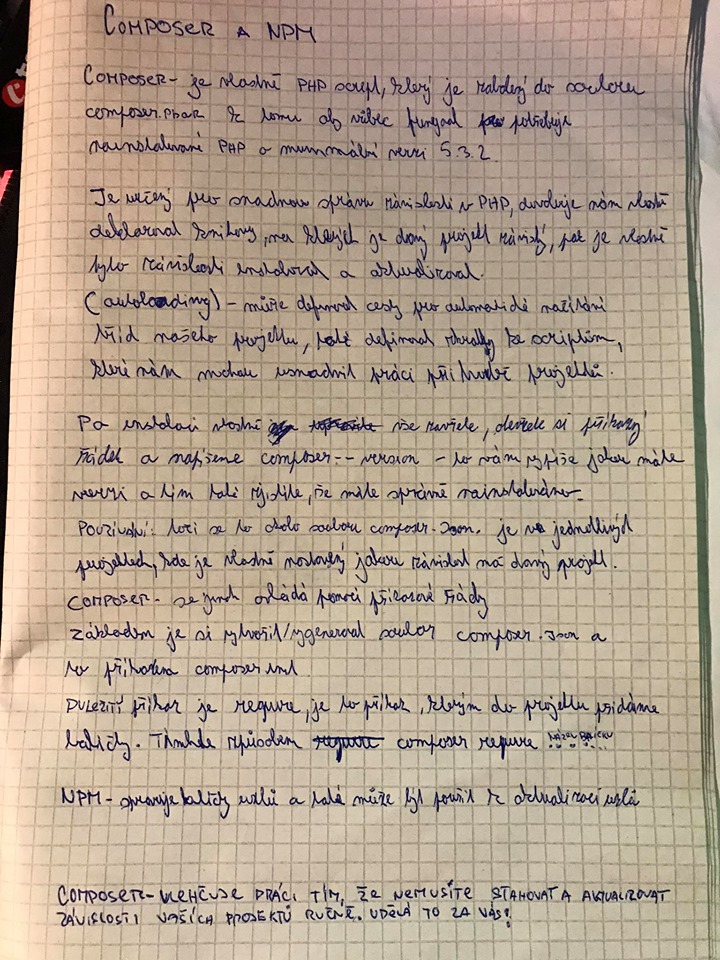 COMPOSER A NPM
COMPOSER - je vlastně PHP script, který je zabalený do souboru
composer.phar K tomu aby vůbec fungoval potřebuje
nainstalované PHP o minimální verzi 5.3.2.
Je určený pro snadnou správu závislostí v PHP, dovoluje nám vlastně
deklarovat knihovny, na kterých je daný projekt závislý, pak je vlastně
tyto závislosti instalovat a aktualizovat.
(autoloading) - může definovat cesty pro automatické načítání
tříd našeho projektu, také definovat zkratky ke scriptům,
které nám mohou usnadnit práci při tvorbě projektů.
Po instalaci vlastně vše zavřete, otevřete si příkazový
řádek a napíšeme composer --version - to vám vypíše jakou máte
verzi a tím také zjistíte, že máte správně nainstalováno.
POUŽÍVÁNÍ: točí se to okolo souboru composer.Json. je v jednotlivých
projektech, kde je vlastně nastavený jakou závislost má daný projekt.
COMPOSER - se jinak ovládá pomocí příkazové řády
Základem je si vytvořit/vygenerovat soubor composer.Json a
to příkazem composer init
DŮLEŽITÝ příkaz je require, je to příkaz, kterým do projektu přidáme
balíčky. Tímhle způsobem composer require NÁZEV BALÍČKU
NPM - spravuje balíčky uzlů a také může být použit k aktualizaci uzlů
COMPOSER - ULEHČUJE PRÁCI TÍM, ŽE NEMUSÍTE STAHOVAT A AKTUALIZOVAT
ZÁVISLOSTI VAŠICH PROJEKTŮ RUČNĚ. UDĚLÁ TO ZA VÁS!